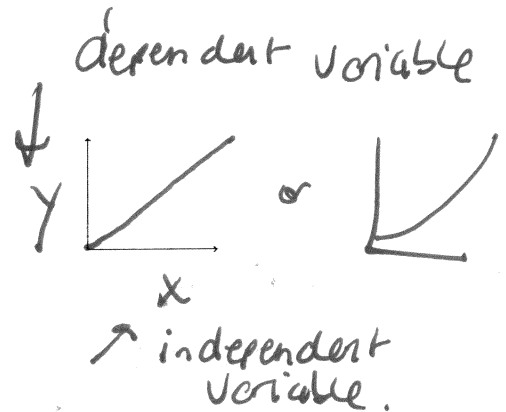 dependent variable
y
or
x
independent
variable.